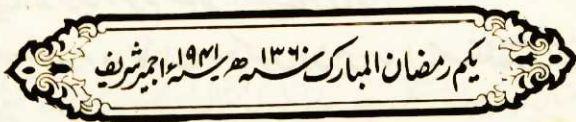 یکم رمضان المبارک سنہ ۱۳۶۰ھ سنہ ۱۹۴۱ء اجمیر شریف